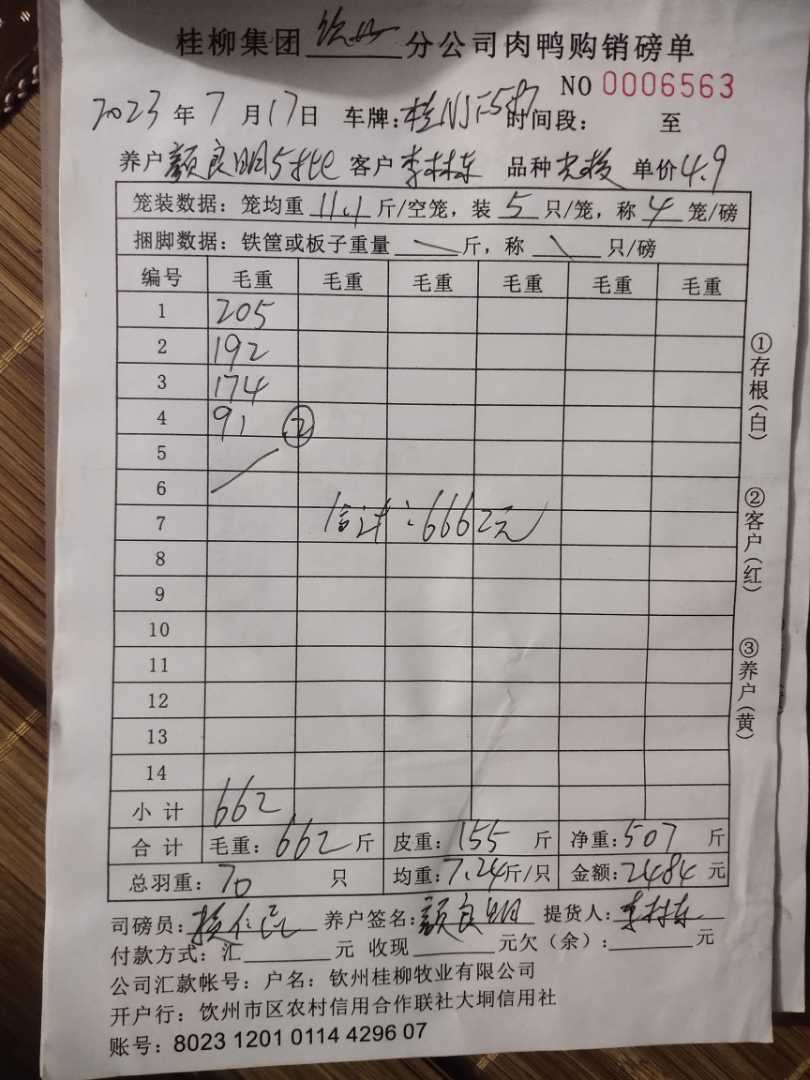 桂柳集团钦州分公司肉鸭购销磅单
NO 0006563
2023年7月17日 车牌:桂N 时间段: 至
养户颜良明5批 客户李林东 品种 单价4.9
笼装数据:笼均重11.1斤/空笼,装5只/笼,称4笼/磅
捆脚数据:铁筐或板子重量\斤,称\只/磅
编号 毛重 毛重 毛重 毛重 毛重 毛重
1 205
2 192
3 174
4 91 ②
5
6
7 合计:6662元
8
9
10
11
12
13
14
小计 662
合计 毛重:662斤 皮重:155斤 净重:507斤
总羽重:70只 均重:7.24斤/只 金额:2484元
司磅员: 养户签名:颜良明 提货人:李林东
付款方式:汇 元 收现 元欠(余): 元
公司汇款帐号:户名:钦州桂柳牧业有限公司
开户行:钦州市区农村信用合作联社大垌信用社
账号:8023 1201 0114 4296 07
①存根(白)
②客户(红)
③养户(黄)